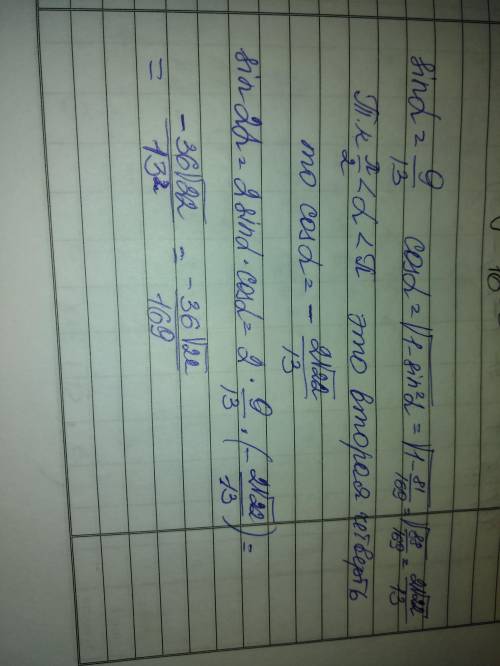 sinα = 9/13 cosα = √(1-sin²α) = √(1-81/169) = √(88/169) = 2√22/13
Т.к π/2 < α < π это вторая четверть
то cosα = - 2√22/13
sin2α = 2sinα·cosα = 2 · 9/13 · (-2√22/13) =
= -36√22/13² = -36√22/169